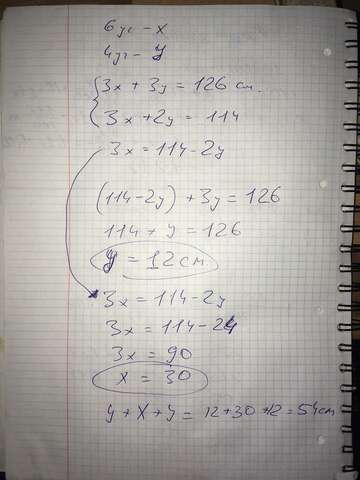 6уг - x
4уг - y
3x + 3y = 126 см.
3x + 2y = 114
3x = 114 - 2y
(114 - 2y) + 3y = 126
114 + y = 126
y = 12 см
3x = 114 - 2y
3x = 114 - 24
3x = 90
x = 30
y + x + y = 12 + 30 + 12 = 54 см